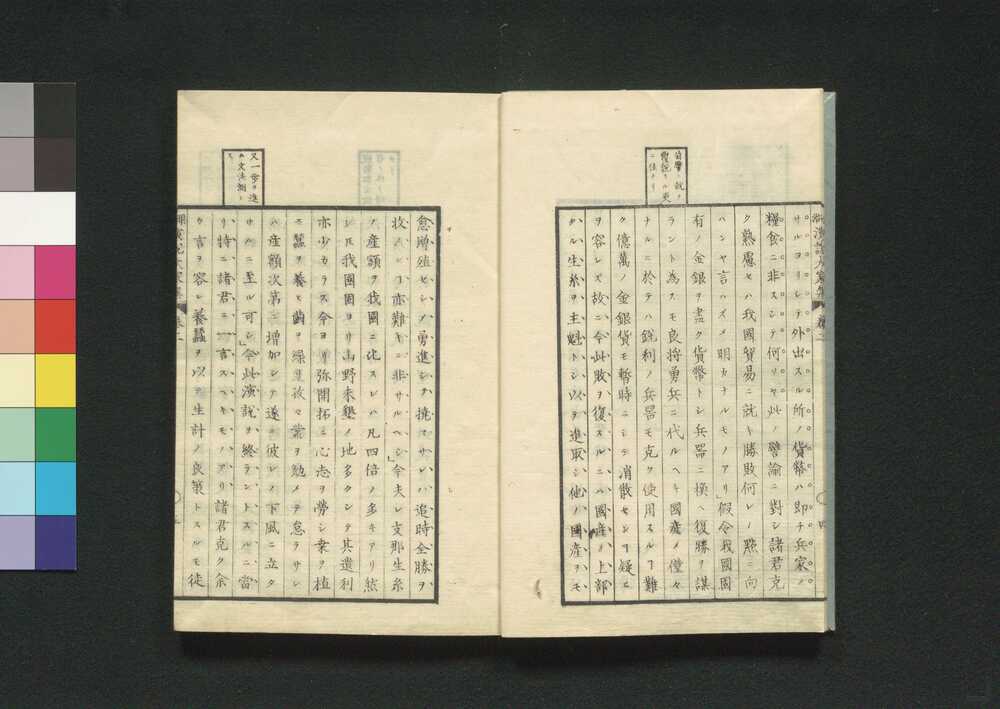 サルヨリシテ外出スル所ノ貨幣ハ即チ兵家ノ
糧食ニ非スシテ何ソヤ此ノ譬諭ニ對シ諸君克
ク熟慮セハ我國貿易ニ就キ勝敗何レノ點ニ向
ハンヤ言ハズメ明カナルモノアリ」假令我國固
有ノ金銀ヲ盡ク貨幣トシ兵器ニ換ヘ復勝ヲ謀
ラント為スモ良将勇兵ニ代ルヘキ國産メ僅々
ナルニ於テハ鋭利ノ兵器モ克ク使用スルヿ難
ク億萬ノ金銀貨モ暫時ニシテ消散センヿ疑ヒ
ヲ容レズ故ニ今此敗ヲ復スルニハ國産ノ上部
タル生糸ヲ主魁トシ以テ進取シ他ノ國産ヲモ
前譬ニ就ノ
更
ニ佳ナリ
愈増殖セシメ勇進シテ撓マサレハ追時全勝ヲ
收メンヿ亦難キニ非サルヘシ」今夫レ支那生糸
ノ産額ヲ我國ニ比スレハ凡四倍ノ多キアリ然
シ𪜈我國固ヨリ山野未墾ノ地多クシテ其遺利
亦少カラス今ヨリ弥開拓ニ心志ヲ勞シ桒ヲ植
ヱ蠶ヲ養ヒ繭ヲ繰リ故々業ヲ勉メテ怠ラサレ
ハ産額次第ニ増加シテ遂ニ彼レノ下風ニ立タ
サルニ至ル可シ」今此演説ヲ終ラントスルニ當
リ特ニ諸君ニ一言スヘキモノアリ諸君克ク余
カ言ヲ容レ養蠶ヲ以テ生計ノ良策トスルモ徒
又一歩ヲ進
ム文法